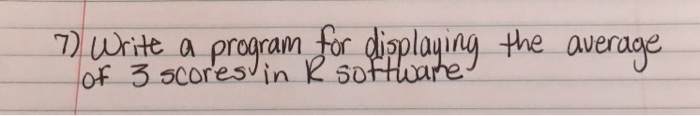 7) Write a program for displaying the average
of 3 scores in R software